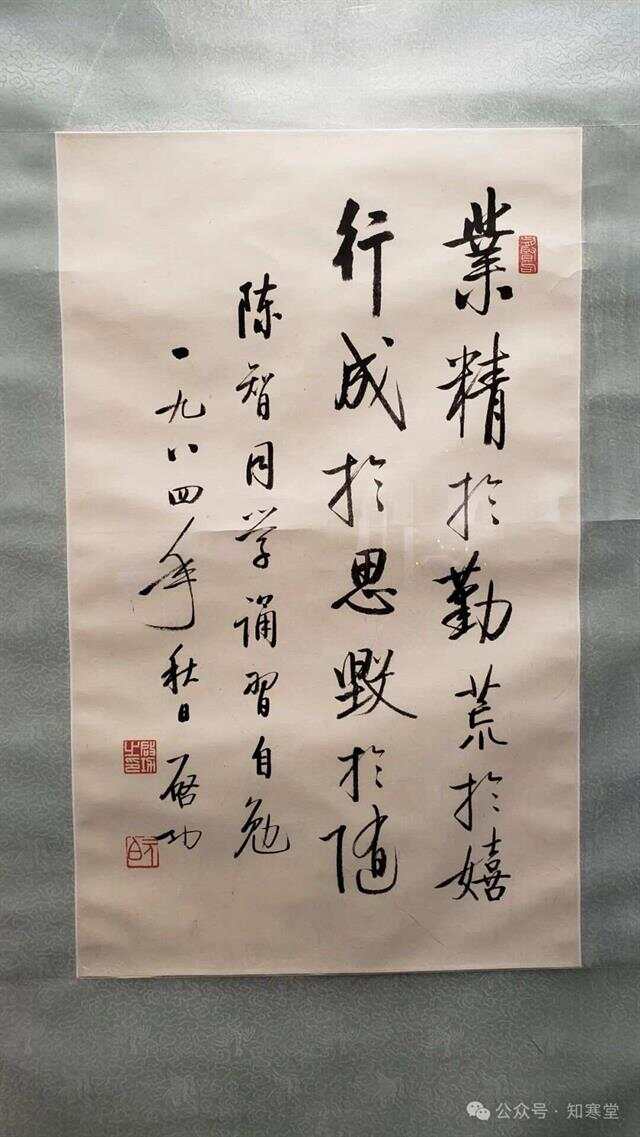 業精於勤荒於嬉
行成於思毀於随
陈智同学誦習自勉
一九八四年秋日 啓功
啟功之印
公众号·知寒堂